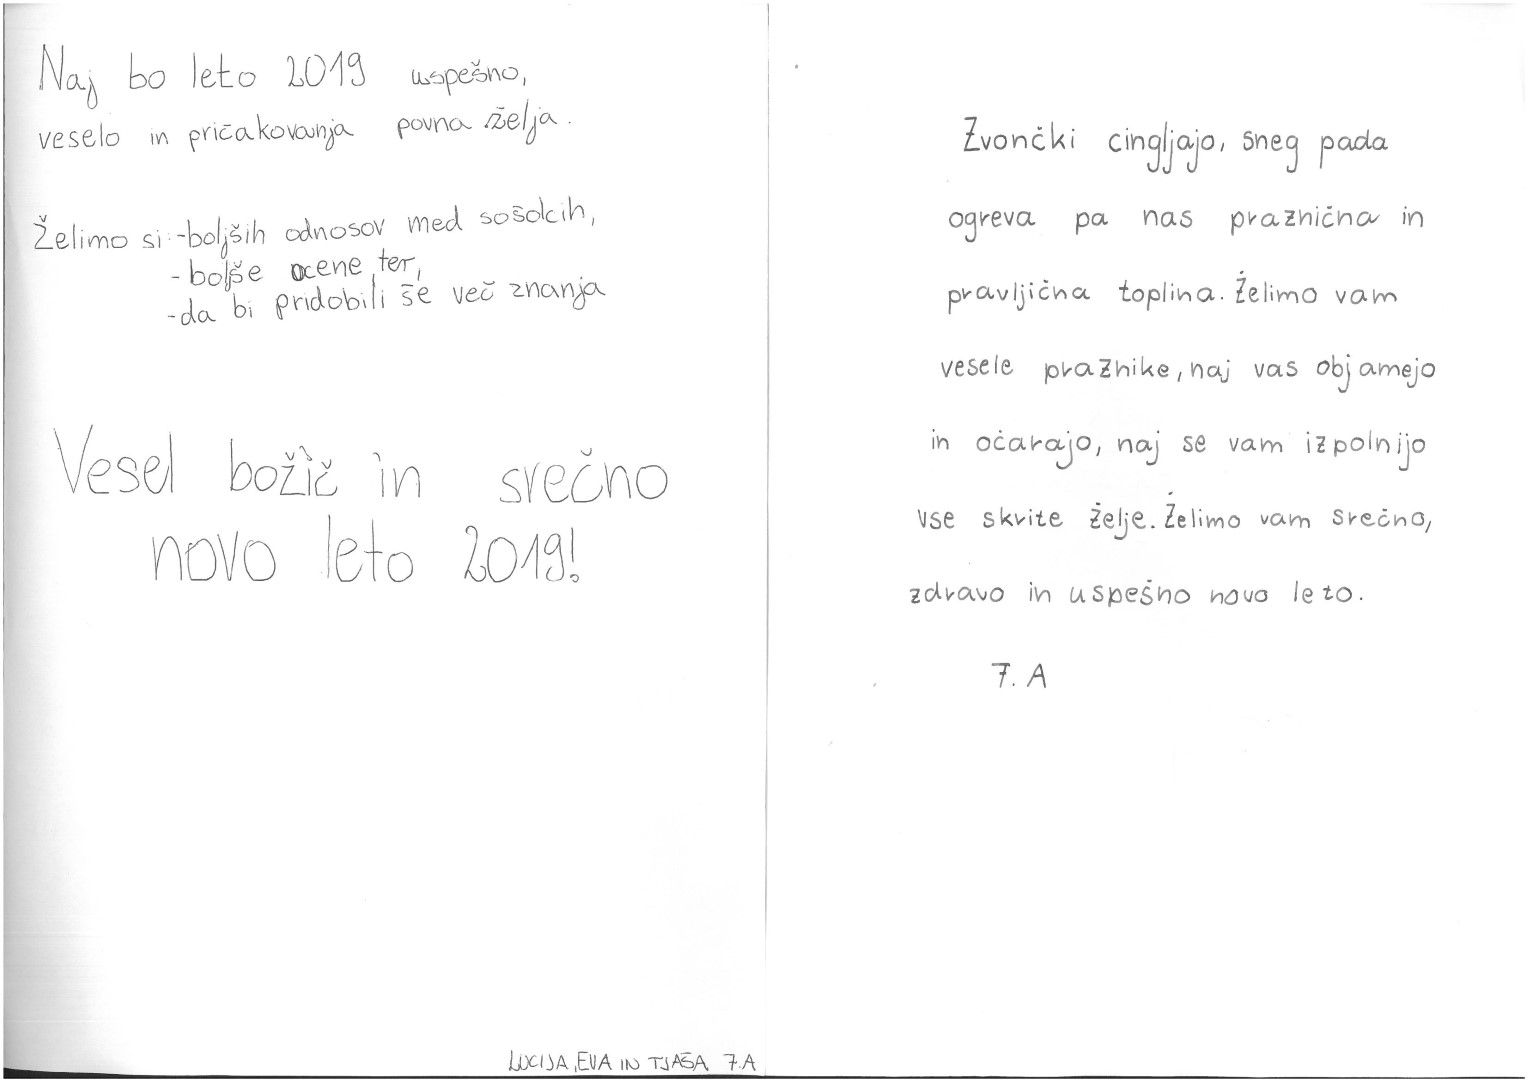 Naj bo leto 2019 uspešno,
veselo in pričakovanja povna želja.
Želimo si:-boljših odnosov med sošolcih,
-bolše ocene ter,
-da bi pridobili še več znanja
Vesel božič in srečno
novo leto 2019!
LUCIJA, EVA IN TJAŠA 7.A
Zvončki cingljajo, sneg pada
ogreva pa nas praznična in
pravljična toplina. Želimo vam
vesele praznike, naj vas objamejo
in očarajo, naj se vam izpolnijo
vse skrite želje. Želimo vam srečno,
zdravo in uspešno novo leto.
7. A